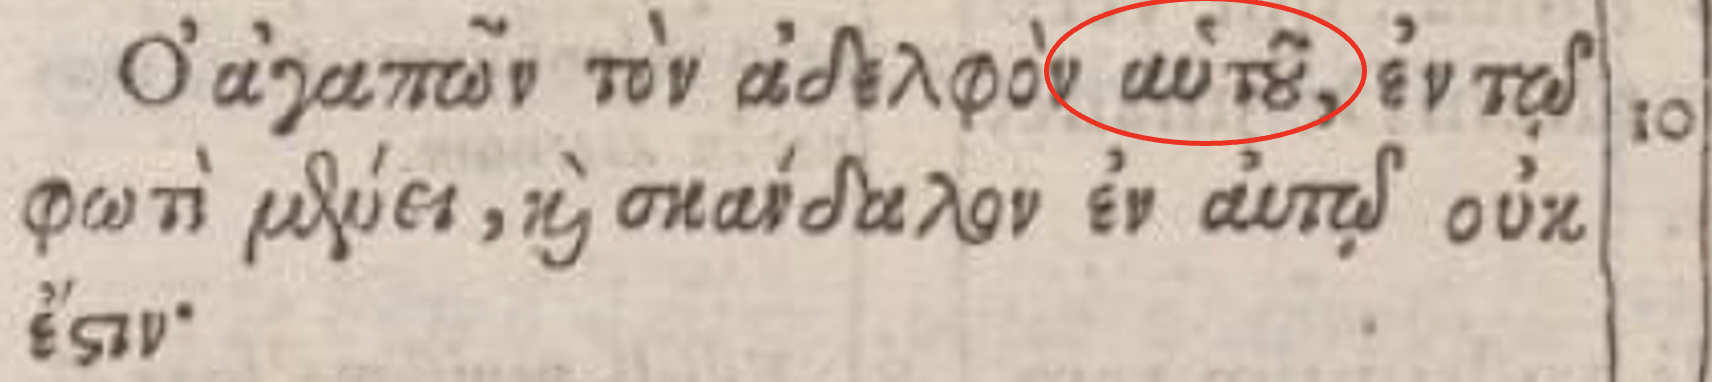 Ὁ ἀγαπῶν τὸν ἀδελφὸν αὑτοῦ, ἐν τῷ 10
φωτὶ μένει, ϗ̀ σκάνδαλον ἐν αὐτῷ οὐκ
ἔστιν·